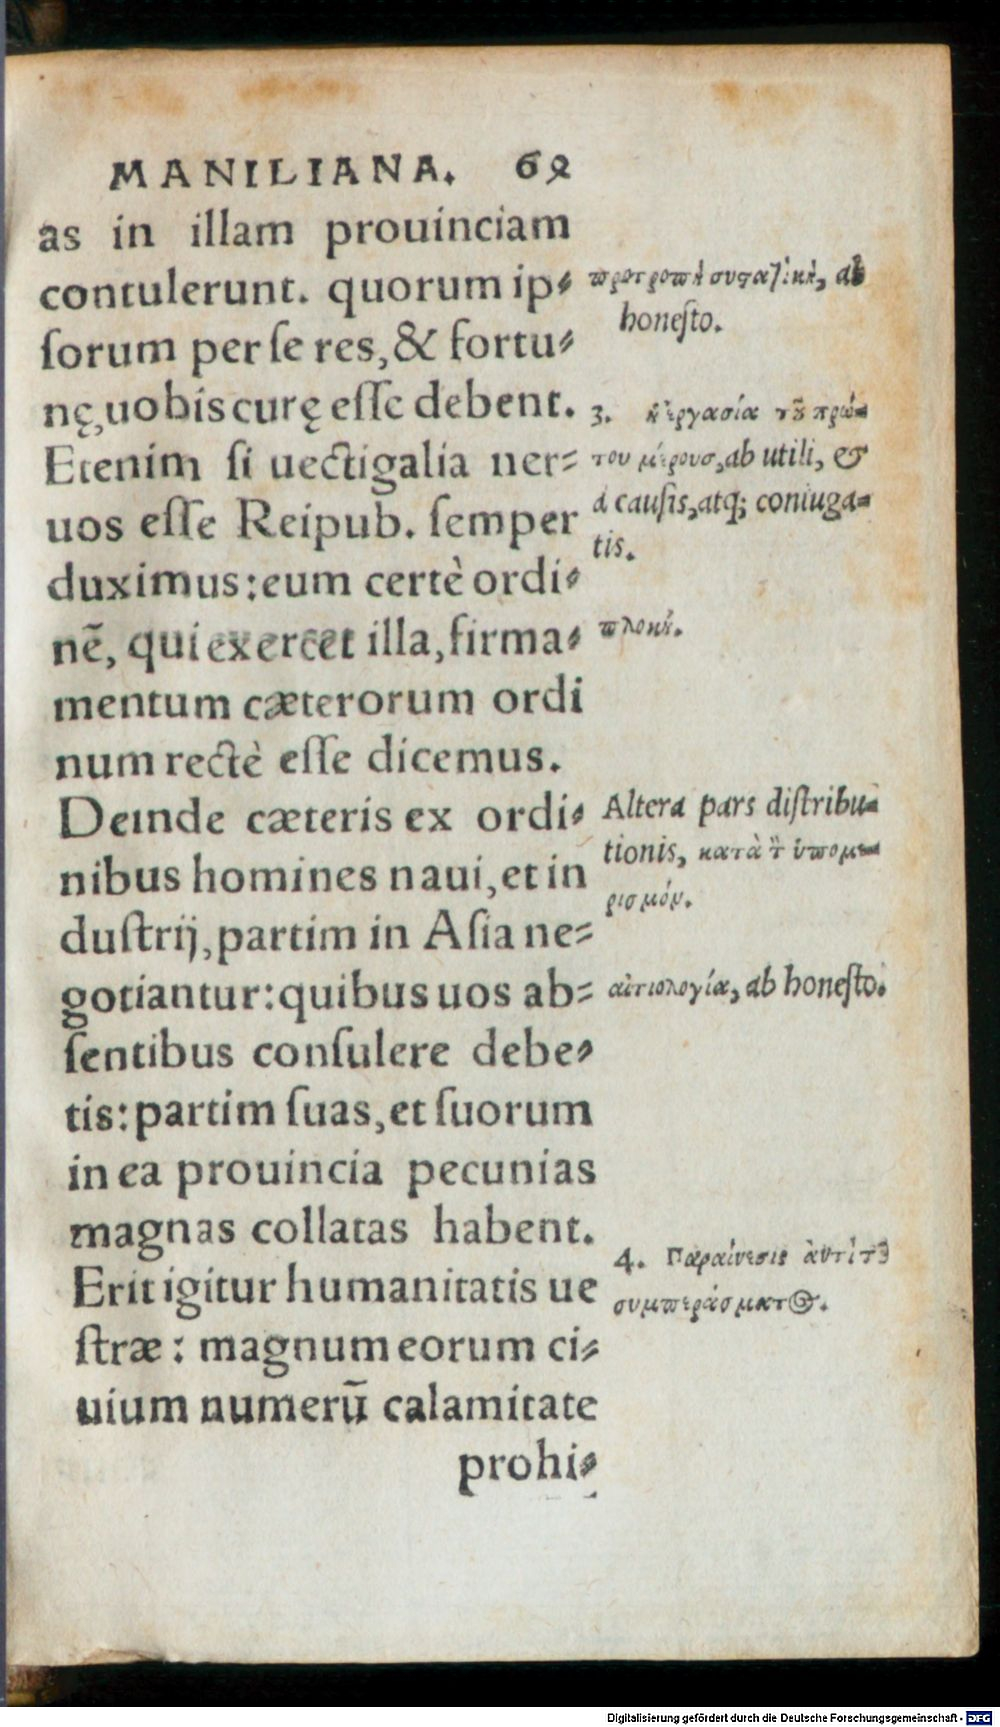 MANILIANA. 62
as in illam prouinciam
contulerunt. quorum ip⸗
ſorum per ſe res, & fortu⸗
nę, uobis curę eſſe debent.
Etenim ſi uectigalia ner⸗
uos eſſe Reipub. ſemper
duximus: eum certè ordi⸗
nē, qui exercet illa, firma⸗
mentum cæterorum ordi
num rectè eſſe dicemus.
Deinde cæteris ex ordi⸗
nibus homines naui, et in
duſtrij, partim in Aſia ne⸗
gotiantur: quibus uos ab⸗
ſentibus conſulere debe⸗
tis: partim ſuas, et ſuorum
in ea prouincia pecunias
magnas collatas habent.
Erit igitur humanitatis ue
ſtræ: magnum eorum ci⸗
uium numerū calamitate
prohi⸗
προτροπὴ συστατικὴ, ab
honeſto.
3. ἐργασία τοῦ πρώ⸗
του μέρους, ab utili, &
à cauſis, atq; coniuga⸗
tis.
πλοκὴ.
Altera pars diſtribu⸗
tionis, κατὰ τ̀ ὑπομε⸗
ρισμόν.
αἰτιολογία, ab honeſto.
4. Παραίνεσις ἀντὶ τοῦ
συμπεράσματος.
Digitalisierung gefördert durch die Deutsche Forschungsgemeinschaft - DFG